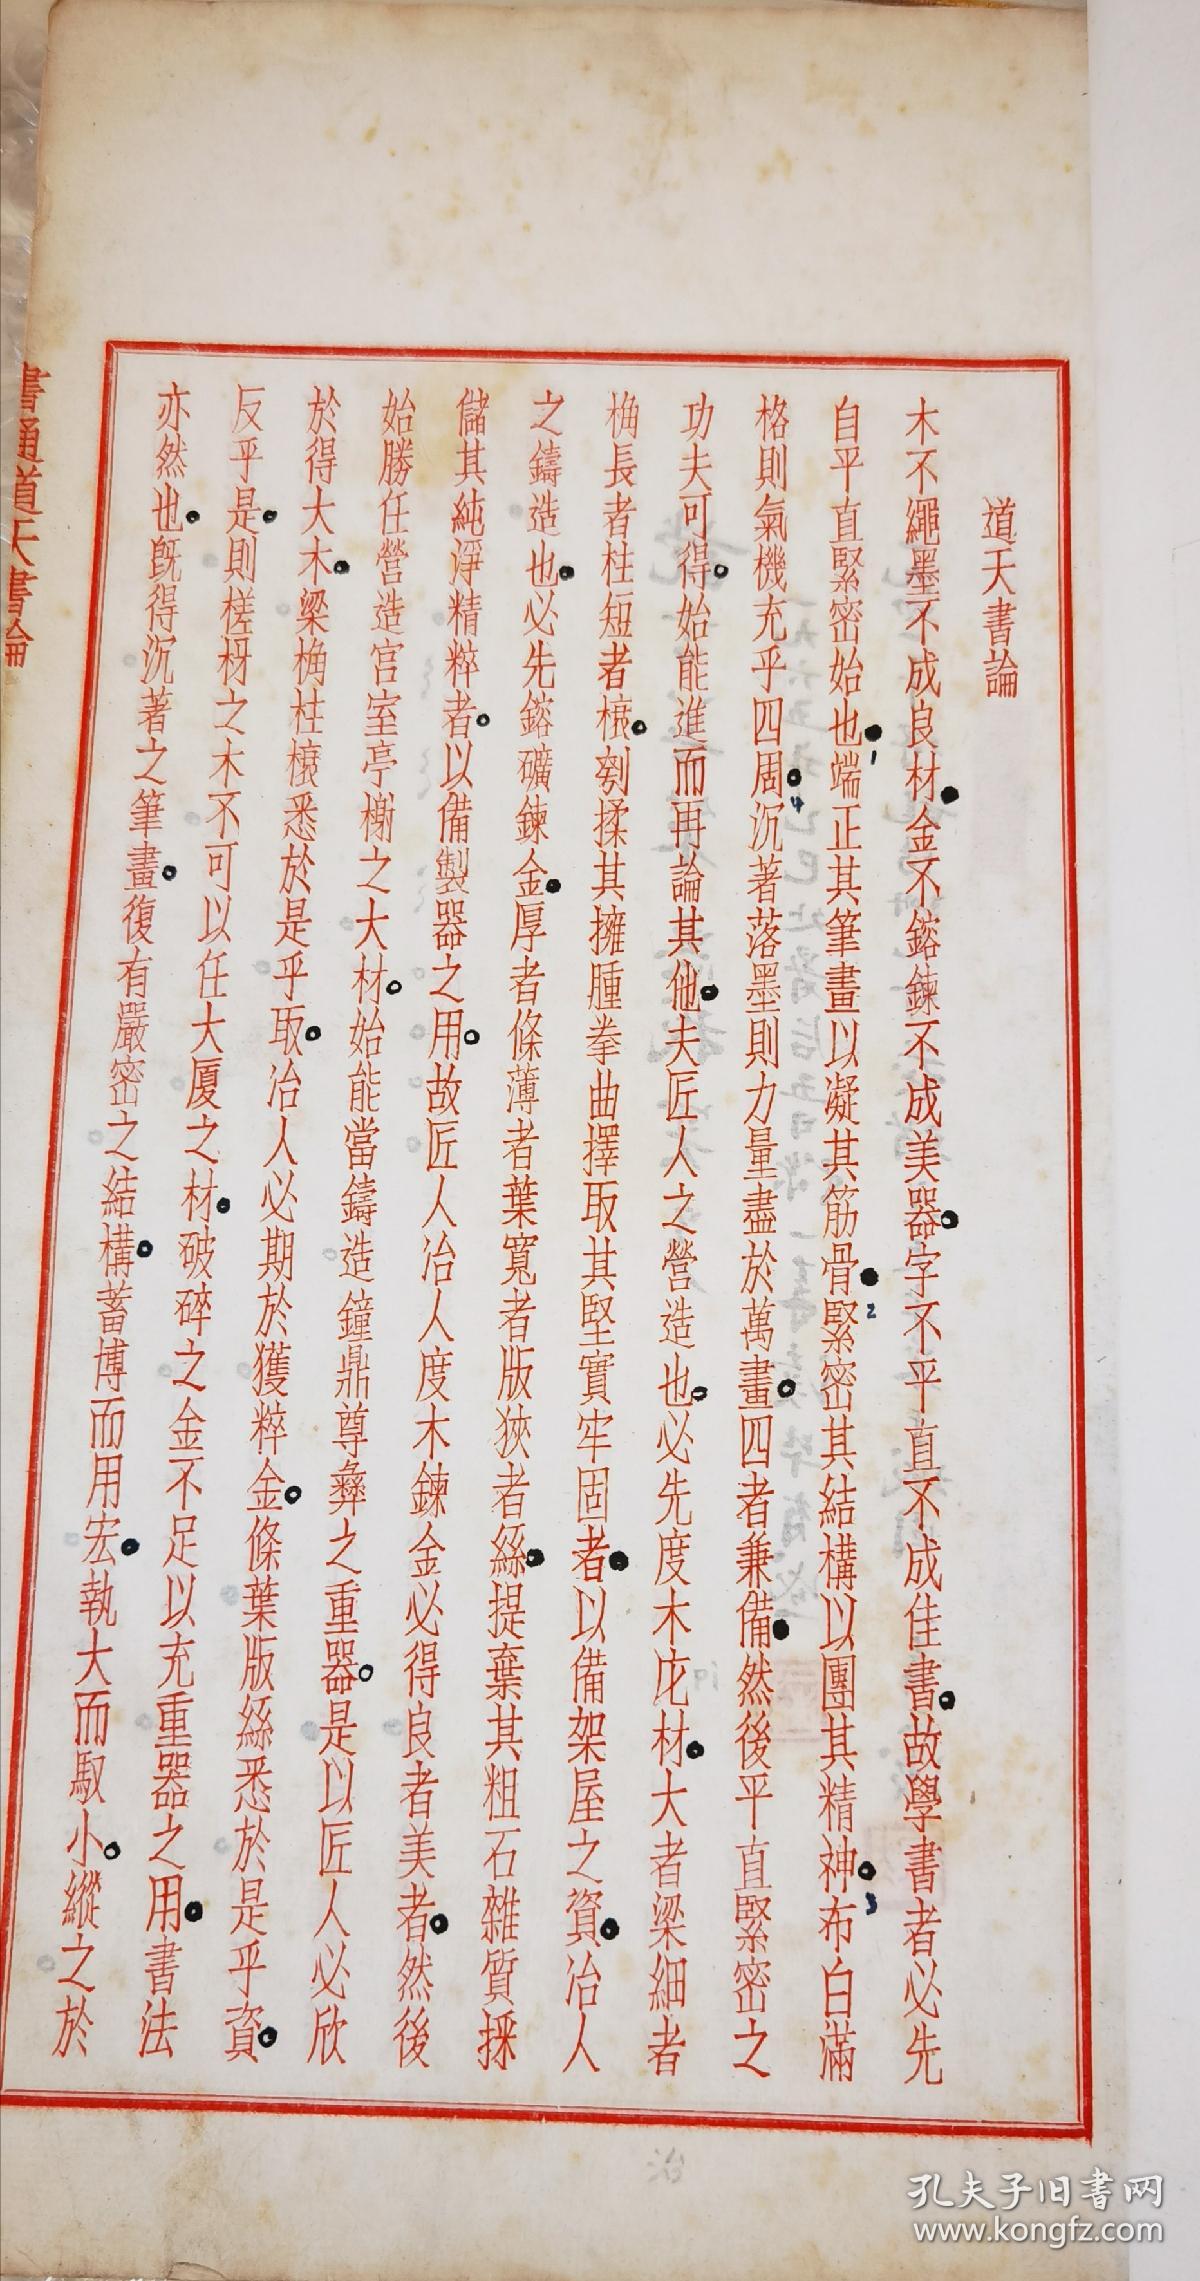 道天書論
木不繩墨不成良材金不鎔鍊不成美器字不平直不成佳書故學書者必先
自平直緊密始也端正其筆畫以凝其筋骨緊密其結構以團其精神布白滿
格則氣機充乎四周沉著落墨則力量盡於萬畫四者兼備然後平直緊密之
功夫可得始能進而再論其他夫匠人之營造也必先度木庀材大者梁細者
桷長者柱短者榱剜揉其擁腫拳曲擇取其堅實牢固者以備架屋之資冶人
之鑄造也必先鎔礦鍊金厚者條薄者葉寬者版狹者絲提棄其粗石雜質採
儲其純淨精粹者以備製器之用故匠人冶人度木鍊金必得良者美者然後
始勝任營造宮室亭榭之大材始能當鑄造鐘鼎尊彝之重器是以匠人必欣
於得大木梁桷柱榱悉於是乎取冶人必期於獲粹金條葉版絲悉於是乎資
反乎是則槎枒之木不可以任大厦之材破碎之金不足以充重器之用書法
亦然也既得沉著之筆畫復有嚴密之結構蓄博而用宏執大而馭小縱之於
書通道天書論
1
2
3
4
孔夫子旧书网
www.kongfz.com